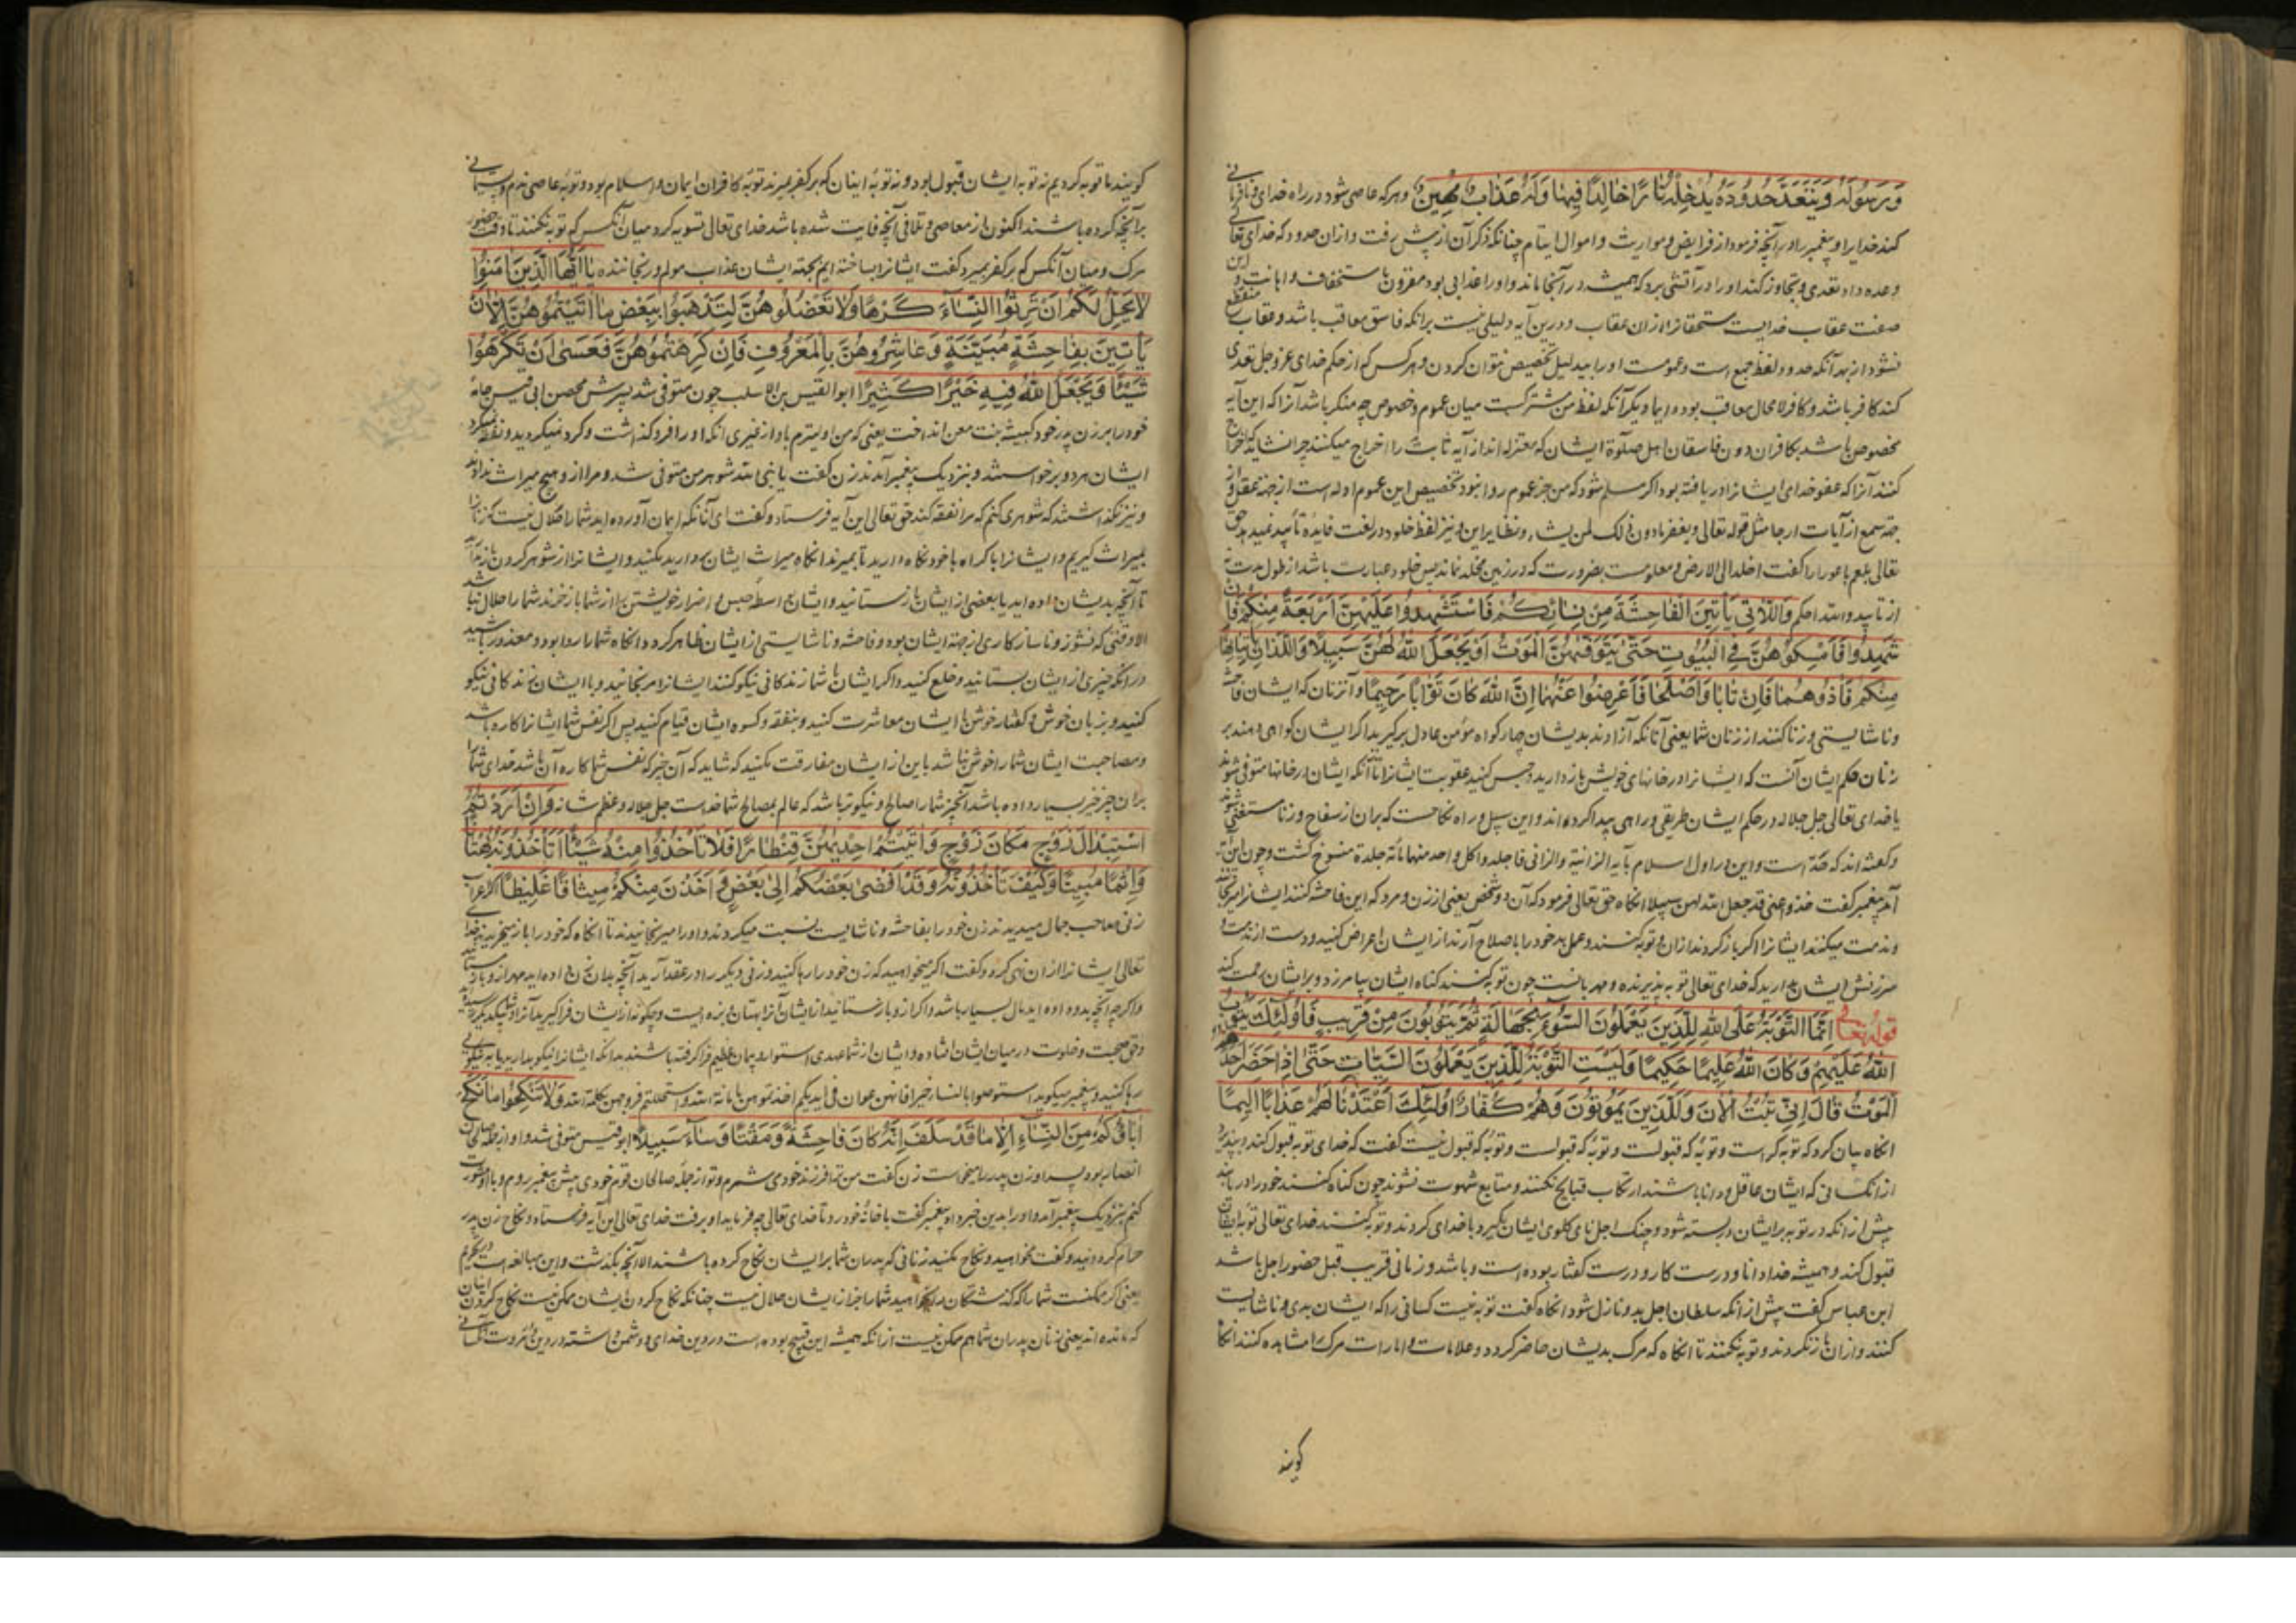 وَرَسُولَهُ وَيَتَعَدَّ حُدُودَهُ يُدْخِلْهُ نَارًا خَالِدًا فِيهَا وَلَهُ عَذَابٌ مُهِينٌ و هرکه عاصی شود در راه خدای
کند خدایرا و پیغمبر را و برآنچه فرمود از فرایض و مواریث و اموال ایتام چنانکه ذکر آن از پیش رفت و ازان حدود که خدای تعالی
وعده داد تعدی و تجاوز کند او را در آتشی برد که همیشه در آنجا ماند و او را عذابی بود مقرون باستخفاف و اهانت و این
صفت عقاب خدایست مستحقانرا ازان عقاب و درین آیه دلیلی نیست برانکه فاسق معاقب باشد و عقاب منقطع
نشود از بهر آنکه حدود لفظ جمع است و عمومست او را بدلیل تخصیص توان کردن و هرکس که از حکم خدای عز و جل تعدی
کند کافر باشد و کافر لا محال معاقب بود دایما و دیگر آنکه لفظ من مشترکست میان عموم و خصوص چه منکر باشد آنرا که این آیه
مخصوص باشد بکافران دون فاسقان اهل صلوة ایشان که معتزله اند از آیه ثابت را اخراج میکنند چرا نشاید که اخراج
کنند آنرا که عفو خدای ایشانرا دریافته بود اکر مسلم شود که من جز عموم روا نبود تخصیص این عموم ادله است از جهة عقل و از
جهة سمع از آیات ارجا مثل قوله تعالی و یغفر ما دون ذلک لمن یشاء و نظایر این و نیز لفظ خلود در لغت فایده تأبید نمیدهد حق
تعالی بلعم باعور را کفت اخلد الی الارض و معلومست بضرورت که در زمین مخلد نماند پس خلود عبارت باشد از طول مدت نه
از تأیید و الله احکم وَاللَّاتِي يَأْتِينَ الْفَاحِشَةَ مِنْ نِسَائِكُمْ فَاسْتَشْهِدُوا عَلَيْهِنَّ أَرْبَعَةً مِنْكُمْ فَإِنْ
شَهِدُوا فَأَمْسِكُوهُنَّ فِي الْبُيُوتِ حَتَّىٰ يَتَوَفَّاهُنَّ الْمَوْتُ أَوْ يَجْعَلَ اللَّهُ لَهُنَّ سَبِيلًا وَاللَّذَانِ يَأْتِيَانِهَا
مِنْكُمْ فَآذُوهُمَا فَإِنْ تَابَا وَأَصْلَحَا فَأَعْرِضُوا عَنْهُمَا إِنَّ اللَّهَ كَانَ تَوَّابًا رَحِيمًا و آنزنان که ایشان فاحشه
و ناشایستی و زنا کنند از زنان شما یعنی آنانکه آزادند بدیشان چهار کواه مؤمن عادل برگیرید اگر ایشان کواهی دهند بر
زنان حکم ایشان آنست که ایشانرا در خانهای خویش بازدارید و حبس کنید عقوبت ایشانرا تا آنکه ایشان در خانها متوفی شوند
یا خدای تعالی جل جلاله در حکم ایشان طریقی و راهی پیدا کرداند و این سبیل و راه نکاحست که بران از سفاح و زنا مستغنی شوند
و کفته اند که حد است و این در اول اسلام بآیه الزانیة و الزانی فاجلدوا کل واحد منهما مائة جلدة منسوخ کشت و چون این آیه
آمد پیغمبر کفت خذوا عنی قد جعل الله لهن سبیلا انکاه حق تعالی فرمود که آن دو شخص یعنی از زن و مرد که این فاحشه کنند ایشانرا برنجانند
و مذمت میکنند ایشانرا اکر باز کردند ازان و توبه کنند و عمل بد خود را باصلاح آرند از ایشان اعراض کنید و دست از مذمت و
سرزنش ایشان بدارید که خدای تعالی توبه پذیرنده و مهربانست چون توبه کنند کناه ایشان بیامرزد و بر ایشان رحمت کند
قوله تعالی إِنَّمَا التَّوْبَةُ عَلَى اللَّهِ لِلَّذِينَ يَعْمَلُونَ السُّوءَ بِجَهَالَةٍ ثُمَّ يَتُوبُونَ مِنْ قَرِيبٍ فَأُولَٰئِكَ يَتُوبُ
اللَّهُ عَلَيْهِمْ وَكَانَ اللَّهُ عَلِيمًا حَكِيمًا وَلَيْسَتِ التَّوْبَةُ لِلَّذِينَ يَعْمَلُونَ السَّيِّئَاتِ حَتَّىٰ إِذَا حَضَرَ أَحَدَهُمُ
الْمَوْتُ قَالَ إِنِّي تُبْتُ الْآنَ وَلَا الَّذِينَ يَمُوتُونَ وَهُمْ كُفَّارٌ أُولَٰئِكَ أَعْتَدْنَا لَهُمْ عَذَابًا أَلِيمًا
انکاه بیان کرد که توبه کراست و توبه که قبولست و توبه که قبول نیست کفت که خدای توبه قبول کند و بپذیرد
از انکسانی که ایشان عاقل و دانا باشند ارتکاب قبایح نکنند و متابع شهوت نشوند چون کناه کنند خود را دریابند
پیش ازانکه در توبه بر ایشان در بسته شود و چنک اجل نای کلوی ایشان بگیرد با خدای کردند و توبه کنند خدای تعالی توبه ایشان
قبول کند و همیشه خدا دانا و درست کار و درست کفتار بوده است و باشد و زمانی قریب قبل حضور اجل باشد
ابن عباس کفت پیش ازانکه سلطان اجل بدو نازل شود انکاه کفت توبه نیست کسانی را که ایشان بدی و ناشایست
کنند و ازان باز نکردند و توبه نکنند تا انکاه که مرک بدیشان حاضر کردد و علامات و امارات مرک را مشاهده کنند انکاه
کویند
کویند ما توبه کردیم نه توبه ایشان قبول بود و نه توبه اینان که بر کفر بمیرند توبه کافران ایمان و اسلام بود و توبه عاصی ندم و پشیمانی
برآنچه کرده باشند اکنون از معاصی و تلافی آنچه فایت شده باشد خدای تعالی تسویه کرد میان آنکس که توبه نکنند تا وقت حضور
مرک و میان آنکس که بر کفر بمیرد کفت ایشانرا ساخته ایم بجهة ایشان عذاب مولم و رنجاننده يَا أَيُّهَا الَّذِينَ آمَنُوا
لَا يَحِلُّ لَكُمْ أَنْ تَرِثُوا النِّسَاءَ كَرْهًا وَلَا تَعْضُلُوهُنَّ لِتَذْهَبُوا بِبَعْضِ مَا آتَيْتُمُوهُنَّ إِلَّا أَنْ
يَأْتِينَ بِفَاحِشَةٍ مُبَيِّنَةٍ وَعَاشِرُوهُنَّ بِالْمَعْرُوفِ فَإِنْ كَرِهْتُمُوهُنَّ فَعَسَىٰ أَنْ تَكْرَهُوا
شَيْئًا وَيَجْعَلَ اللَّهُ فِيهِ خَيْرًا كَثِيرًا ابو القیس بن الاسلب چون متوفی شد پسرش محصن ابی قیس جامه
خود را بر زن پدر خود کبیشه بنت معن انداخت یعنی که من اولیترم باو از غیری انکه او را فرو کذاشت و کرد نمیکردید و نفقه نمیکرد
ایشان هردو برخواستند و بنزدیک پیغمبر آمدند زن کفت یا نبی الله شوهر من متوفی شد و مرا ازو هیچ میراث ندادند
و نیز نکذاشتند که شوهری کنم که مرا نفقه کند حق تعالی این آیه فرستاد و کفت ای آنانکه ایمان آورده اید شما را حلال نیست که زنانرا
بمیراث کیریم و ایشانرا باکراه با خود نکاه دارید تا بمیرند انکاه میراث ایشان بردارید مکنید و ایشانرا از شوهر کردن باز
تا آنچه بدیشان داده اید یا بعضی از ایشان بازستانید و ایشان بواسطه حبس و اضرار خویشتن را از شما باز خرند شما را حلال نباشد
الا وقتی که نشوز و ناسازکاری از جهة ایشان بود و فاحشه و ناشایستی از ایشان ظاهر کردد انکاه شما را روا بود و معذور باشید
درانکه چیزی از ایشان بستانید و خلع کنید و اکر ایشان با شما زندکانی نیکو کنند ایشانرا مرنجانید و با ایشان زندکانی نیکو
کنید و بزبان خوش و کفتار خوش با ایشان معاشرت کنید و بنفقه و کسوه ایشان قیام کنید پس اکر نفس شما ایشانرا کاره باشد
و مصاحبت ایشان شما را خوش نباشد باین از ایشان مفارقت مکنید که شاید که آن چیز که نفس شما کاره آن باشد خدای شما
بران چیز خیر بسیار داده باشد آنچیز شما را صالح و نیکوتر باشد که عالم بمصالح شما خداست جل جلاله و عظم شانه وَإِنْ أَرَدْتُمُ
اسْتِبْدَالَ زَوْجٍ مَكَانَ زَوْجٍ وَآتَيْتُمْ إِحْدَاهُنَّ قِنْطَارًا فَلَا تَأْخُذُوا مِنْهُ شَيْئًا أَتَأْخُذُونَهُ بُهْتَانًا
وَإِثْمًا مُبِينًا وَكَيْفَ تَأْخُذُونَهُ وَقَدْ أَفْضَىٰ بَعْضُكُمْ إِلَىٰ بَعْضٍ وَأَخَذْنَ مِنْكُمْ مِيثَاقًا غَلِيظًا
زنی صاحب جمال میدیدند زن خود را بفاحشه و ناشایست نسبت میکردند و او را میرنجانیدند تا انکاه که خود را باز میخرید خدای
تعالی ایشانرا ازان نهی کرد و کفت اکر میخواهید که زن خود را رها کنید و زنی دیگر را در عقد آرید آنچه بدان زن داده اید مهر ازو باز مستانید
و اکرچه آنچه بدو داده اید مال بسیار باشد و اکر ازو بازستانید از ایشان آنرا بهتان و بزه ایست و چکونه از ایشان فراکیرید آنرا
و حق صحبت و خلوت در میان ایشان افتاده و ایشان از شما عهدی استوار و پیمان عظیم فراکرفته باشند بدانکه ایشانرا نیکو بدارید یا به نیکوئی
رها کنید و پیغمبر میکوید استوصوا بالنساء خیرا فانهن عوان فی ایدیکم اخذتموهن بامانة الله و استحللتم فروجهن بکلمة الله وَلَا تَنْكِحُوا مَا نَكَحَ
آبَاؤُكُمْ مِنَ النِّسَاءِ إِلَّا مَا قَدْ سَلَفَ إِنَّهُ كَانَ فَاحِشَةً وَمَقْتًا وَسَاءَ سَبِيلًا ابو قیس متوفی شد و او از جمله صالحان
انصار بود پسر او زن پدر را میخواست زن کفت من ترا فرزند خود می شمرم و تو از جمله صالحان قوم خودی پیش پیغمبر روم و با او مشورت
کنم بنزدیک پیغمبر آمد و او را بدین خبر داد پیغمبر کفت با خانه خود رو تا خدای تعالی چه فرماید او برفت خدای تعالی این آیه فرستاد و نکاح زن پدر
حرام کردانید و کفت نخواهید و نکاح مکنید زنانی که پدران شما بر ایشان نکاح کرده باشند الا آنچه بکذشت و این مبالغه است در تحریم
یعنی اکر ممکنست شما را که کذشتکان را بخواهید شما را جز از ایشان حلال نیست چنانکه نکاح کردن ایشان ممکن نیست نکاح کردن اینان
که مانده اند یعنی زنان پدران شما هم ممکن نیست ازانکه همیشه این قبیح بوده است در دین خدای و دشمن داشته در دین و مروت